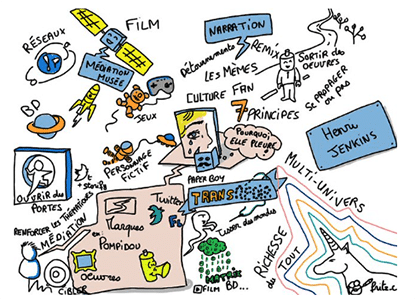 FILM
RÉSEAUX
MÉDIATION
MUSÉE
NARRATION
Détournements
REMIX
LES MÊMES
SORTIR des
OEUVRES
SE PROPAGER
ou pas
CULTURE FAN
7 PRINCIPES
BD
JEUX
PERSONNAGE
FICTIF
POURQUOI
ELLE PLEURE
Henry
JENKINS
PAPER BOY
OUVRIR des
PORTES
TRANS
MULTI-UNIVERS
Twitter
RENFORCER les THÉMATIQUES
MÉDIATION
Masques
en
POMPIDOU
OEUVRES
CIBLER
des mondes
MATRIX
FILM
BD...
RICHESSE
du
TOUT